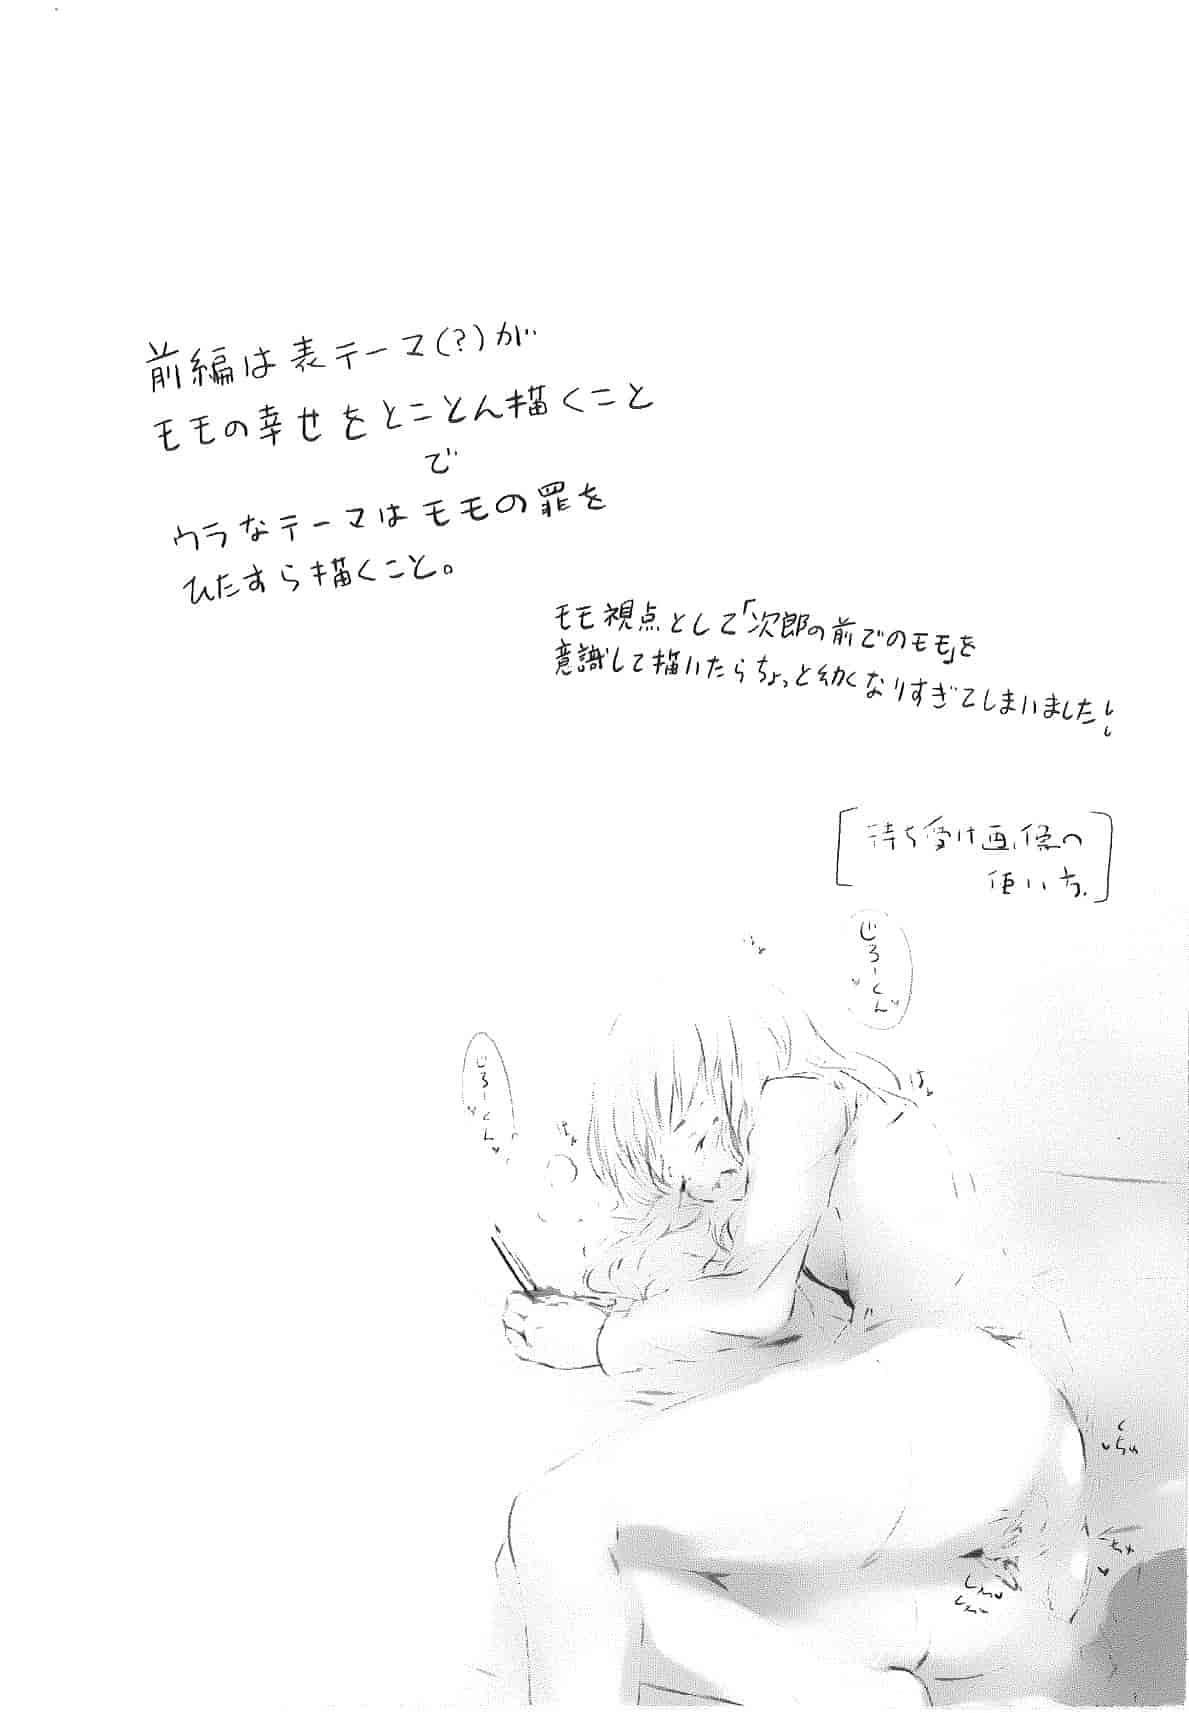 前編は表テーマ(?)が
モモの幸せをとことん描くこと
で
ウラなテーマはモモの罪を
ひたすら描くこと。
モモ視点として「次郎の前でのモモ」を
意識して描いたらちょっと幼くなりすぎてしまいました!
[待ち受け画像の
使い方]
じろーくん
じろーくん
はぁ
はぁ
はぁ
くちゅ